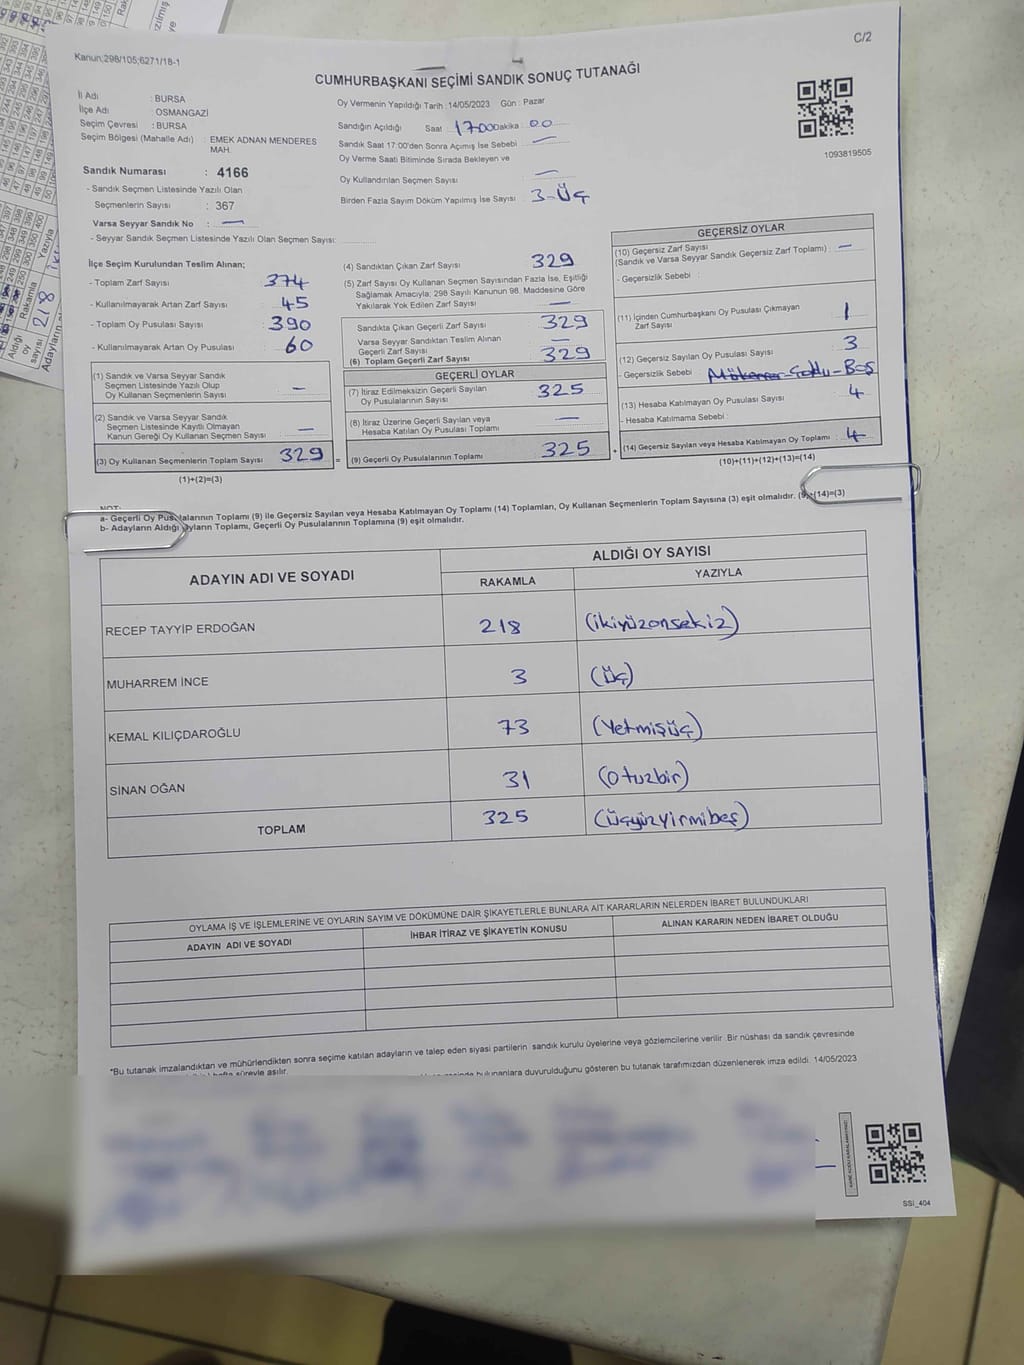 C/2
Kanun;298/105;6271/18-1
CUMHURBAŞKANI SEÇİMİ SANDIK SONUÇ TUTANAĞI
İl Adı : BURSA
İlçe Adı : OSMANGAZİ
Seçim Çevresi : BURSA
Seçim Bölgesi (Mahalle Adı) : EMEK ADNAN MENDERES MAH.
Sandık Numarası : 4166
- Sandık Seçmen Listesinde Yazılı Olan
Seçmenlerin Sayısı : 367
Varsa Seyyar Sandık No : —
- Seyyar Sandık Seçmen Listesinde Yazılı Olan Seçmen Sayısı:
Oy Vermenin Yapıldığı Tarih : 14/05/2023 Gün : Pazar
Sandığın Açıldığı Saat : 17:00 Dakika : 00
Sandık Saat 17:00'den Sonra Açımış İse Sebebi : —
Oy Verme Saati Bitiminde Sırada Bekleyen ve
Oy Kullandırılan Seçmen Sayısı : —
Birden Fazla Sayım Döküm Yapılmış İse Sayısı : 3-Üç
1093819505
İlçe Seçim Kurulundan Teslim Alınan;
- Toplam Zarf Sayısı : 374
- Kullanılmayarak Artan Zarf Sayısı : 45
- Toplam Oy Pusulası Sayısı : 390
- Kullanılmayarak Artan Oy Pusulası : 60
(1) Sandık ve Varsa Seyyar Sandık
Seçmen Listesinde Yazılı Olup
Oy Kullanan Seçmenlerin Sayısı : —
(2) Sandık ve Varsa Seyyar Sandık
Seçmen Listesinde Kayıtlı Olmayan
Kanun Gereği Oy Kullanan Seçmen Sayısı : —
(3) Oy Kullanan Seçmenlerin Toplam Sayısı : 329
(1)+(2)=(3)
(4) Sandıktan Çıkan Zarf Sayısı : 329
(5) Zarf Sayısı Oy Kullanan Seçmen Sayısından Fazla İse, Eşitliği
Sağlamak Amacıyla; 298 Sayılı Kanunun 98. Maddesine Göre
Yakılarak Yok Edilen Zarf Sayısı : —
Sandıkta Çıkan Geçerli Zarf Sayısı : 329
Varsa Seyyar Sandıktan Teslim Alınan
Geçerli Zarf Sayısı : —
(6) Toplam Geçerli Zarf Sayısı : 329
GEÇERLİ OYLAR
(7) İtiraz Edilmeksizin Geçerli Sayılan
Oy Pusulalarının Sayısı : 325
(8) İtiraz Üzerine Geçerli Sayılan veya
Hesaba Katılan Oy Pusulası Toplamı : —
(9) Geçerli Oy Pusulalarının Toplamı : 325
GEÇERSİZ OYLAR
(10) Geçersiz Zarf Sayısı
(Sandık ve Varsa Seyyar Sandık Geçersiz Zarf Toplamı) : —
- Geçersizlik Sebebi :
(11) İçinden Cumhurbaşkanı Oy Pusulası Çıkmayan
Zarf Sayısı : 1
(12) Geçersiz Sayılan Oy Pusulası Sayısı : 3
- Geçersizlik Sebebi : -Boş
(13) Hesaba Katılmayan Oy Pusulası Sayısı : 4
- Hesaba Katılmama Sebebi :
(14) Geçersiz Sayılan veya Hesaba Katılmayan Oy Toplamı : 4
(10)+(11)+(12)+(13)=(14)
NOT:
a- Geçerli Oy Pusulalarının Toplamı (9) ile Geçersiz Sayılan veya Hesaba Katılmayan Oy Toplamı (14) Toplamları, Oy Kullanan Seçmenlerin Toplam Sayısına (3) eşit olmalıdır. (9)+(14)=(3)
b- Adayların Aldığı Oyların Toplamı, Geçerli Oy Pusulalarının Toplamına (9) eşit olmalıdır.
ADAYIN ADI VE SOYADI
ALDIĞI OY SAYISI
RAKAMLA YAZIYLA
RECEP TAYYİP ERDOĞAN 218 (ikiyüzonsekiz)
MUHARREM İNCE 3 (Üç)
KEMAL KILIÇDAROĞLU 73 (Yetmişüç)
SİNAN OĞAN 31 (Otuzbir)
TOPLAM 325 (Üçyüzyirmibeş)
OYLAMA İŞ VE İŞLEMLERİNE VE OYLARIN SAYIM VE DÖKÜMÜNE DAİR ŞİKAYETLERLE BUNLARA AİT KARARLARIN NELERDEN İBARET BULUNDUKLARI
ADAYIN ADI VE SOYADI İHBAR İTİRAZ VE ŞİKAYETİN KONUSU ALINAN KARARIN NEDEN İBARET OLDUĞU
*Bu tutanak imzalandıktan ve mühürlendikten sonra seçime katılan adayların ve talep eden siyasi partilerin sandık kurulu üyelerine veya gözlemcilerine verilir. Bir nüshası da sandık çevresinde
hafta süreyle asılır.
bulunanlara duyurulduğunu gösteren bu tutanak tarafımızdan düzenlenerek imza edildi. 14/05/2023
SSİ_404